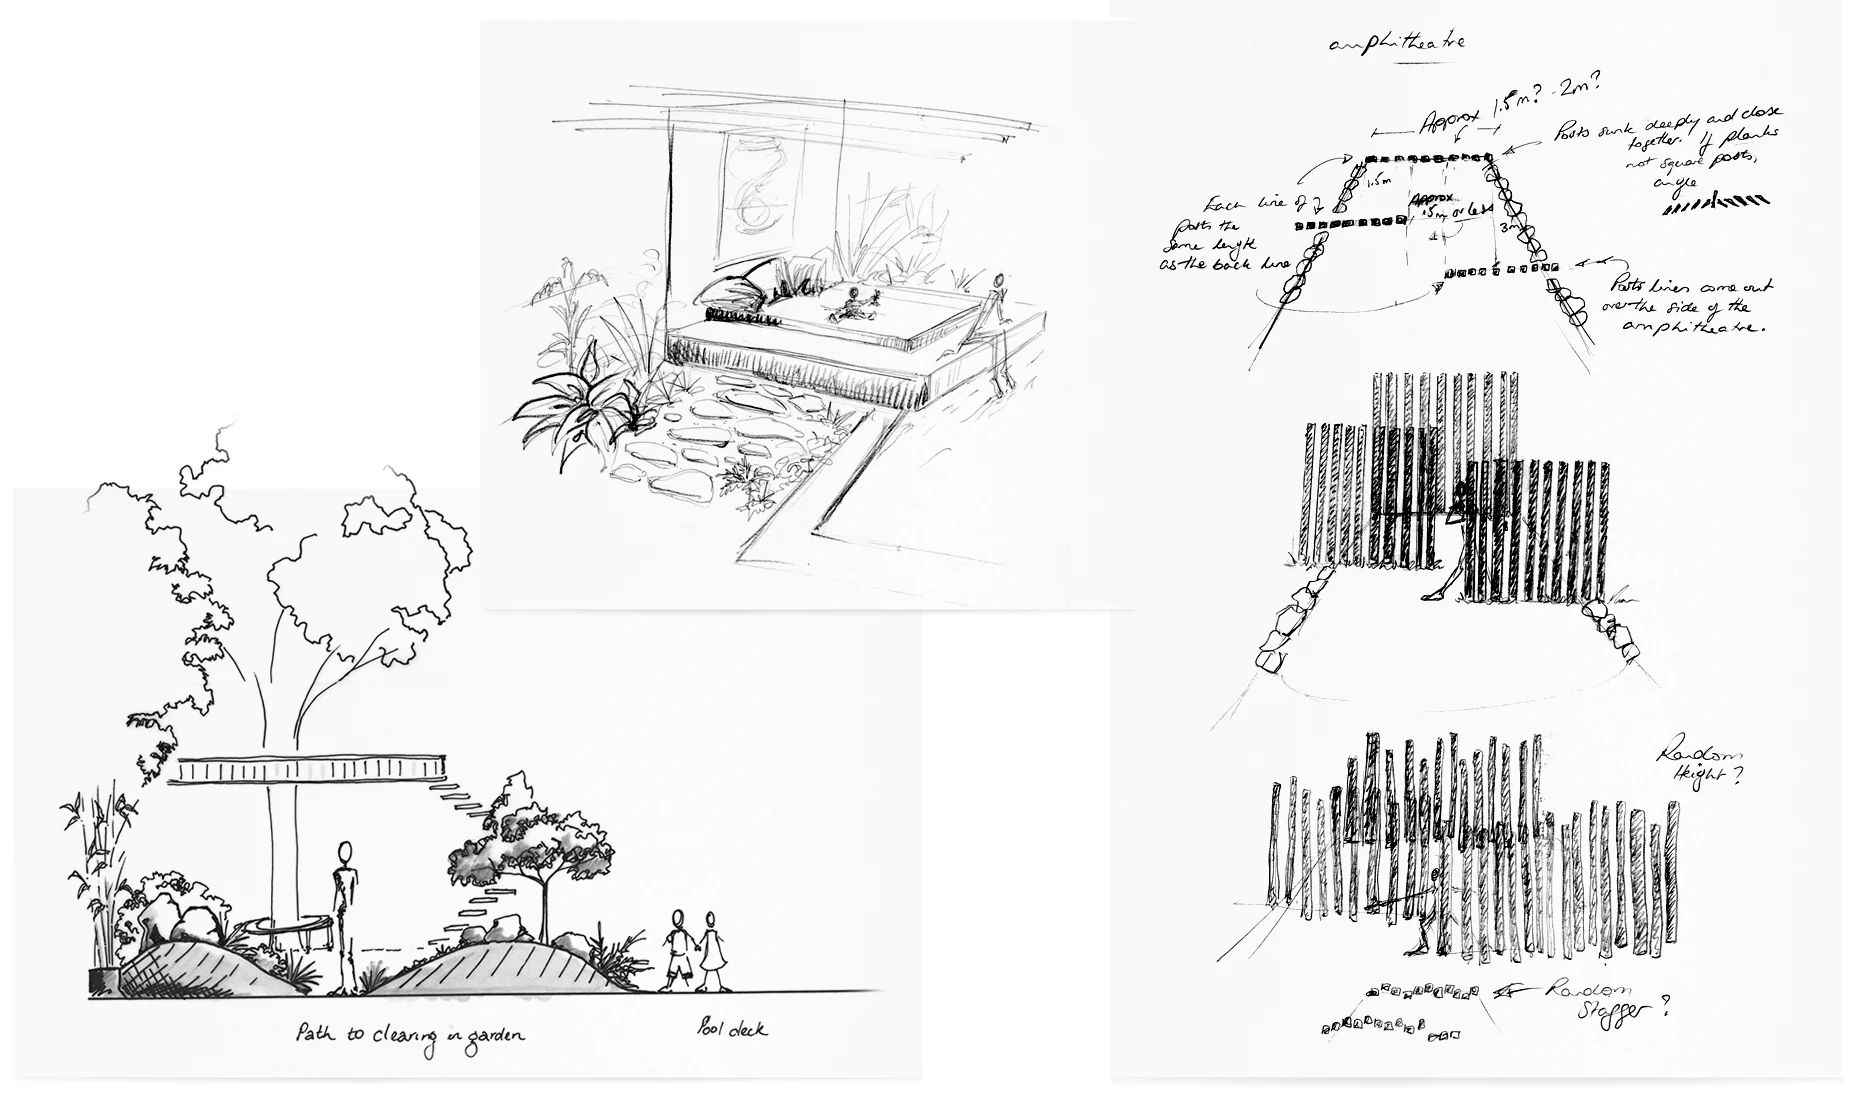 amphitheatre
Approx 1.5m? 2m?
Posts sunk deeply and close
together. If planks
not square posts,
angle
1.5m
Each line of
posts the
same length
as the back line
Approx
1.5m or less
3m
Posts lines come out
over the side of the
amphitheatre.
Random
Height?
Random
Stagger?
Path to clearing in garden
Pool deck